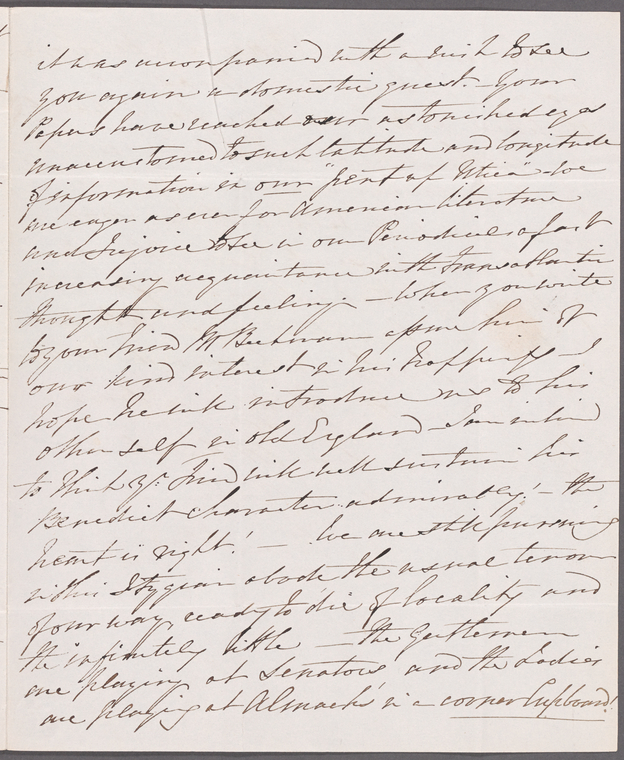 it was accompanied with a wish to see
you again a domestic guest. – Your
Papers have reached our astonished eyes
unaccustomed to such latitude and longitude
of information in our "pent up Utica" We
are eager as ever for American literature
and rejoice to see in our Periodicals a fast
increasing acquaintance with transatlantic
thought and feeling. – When you write
to your Friend Mr Beekman assure him of
our kind interest in his happiness – I
hope he will introduce us to his
other self in old England – I am inclined
to think yr. Friend will well sustain his
Benedict character admirably! – the
heart is right! – We are still pursuing
in this Stygian abode the usual tenor
of our way, ready to die of locality and
the infinitely little – the Gentlemen
are playing at Senators and the Ladies
are playing at Almack's in a corner Cupboard!